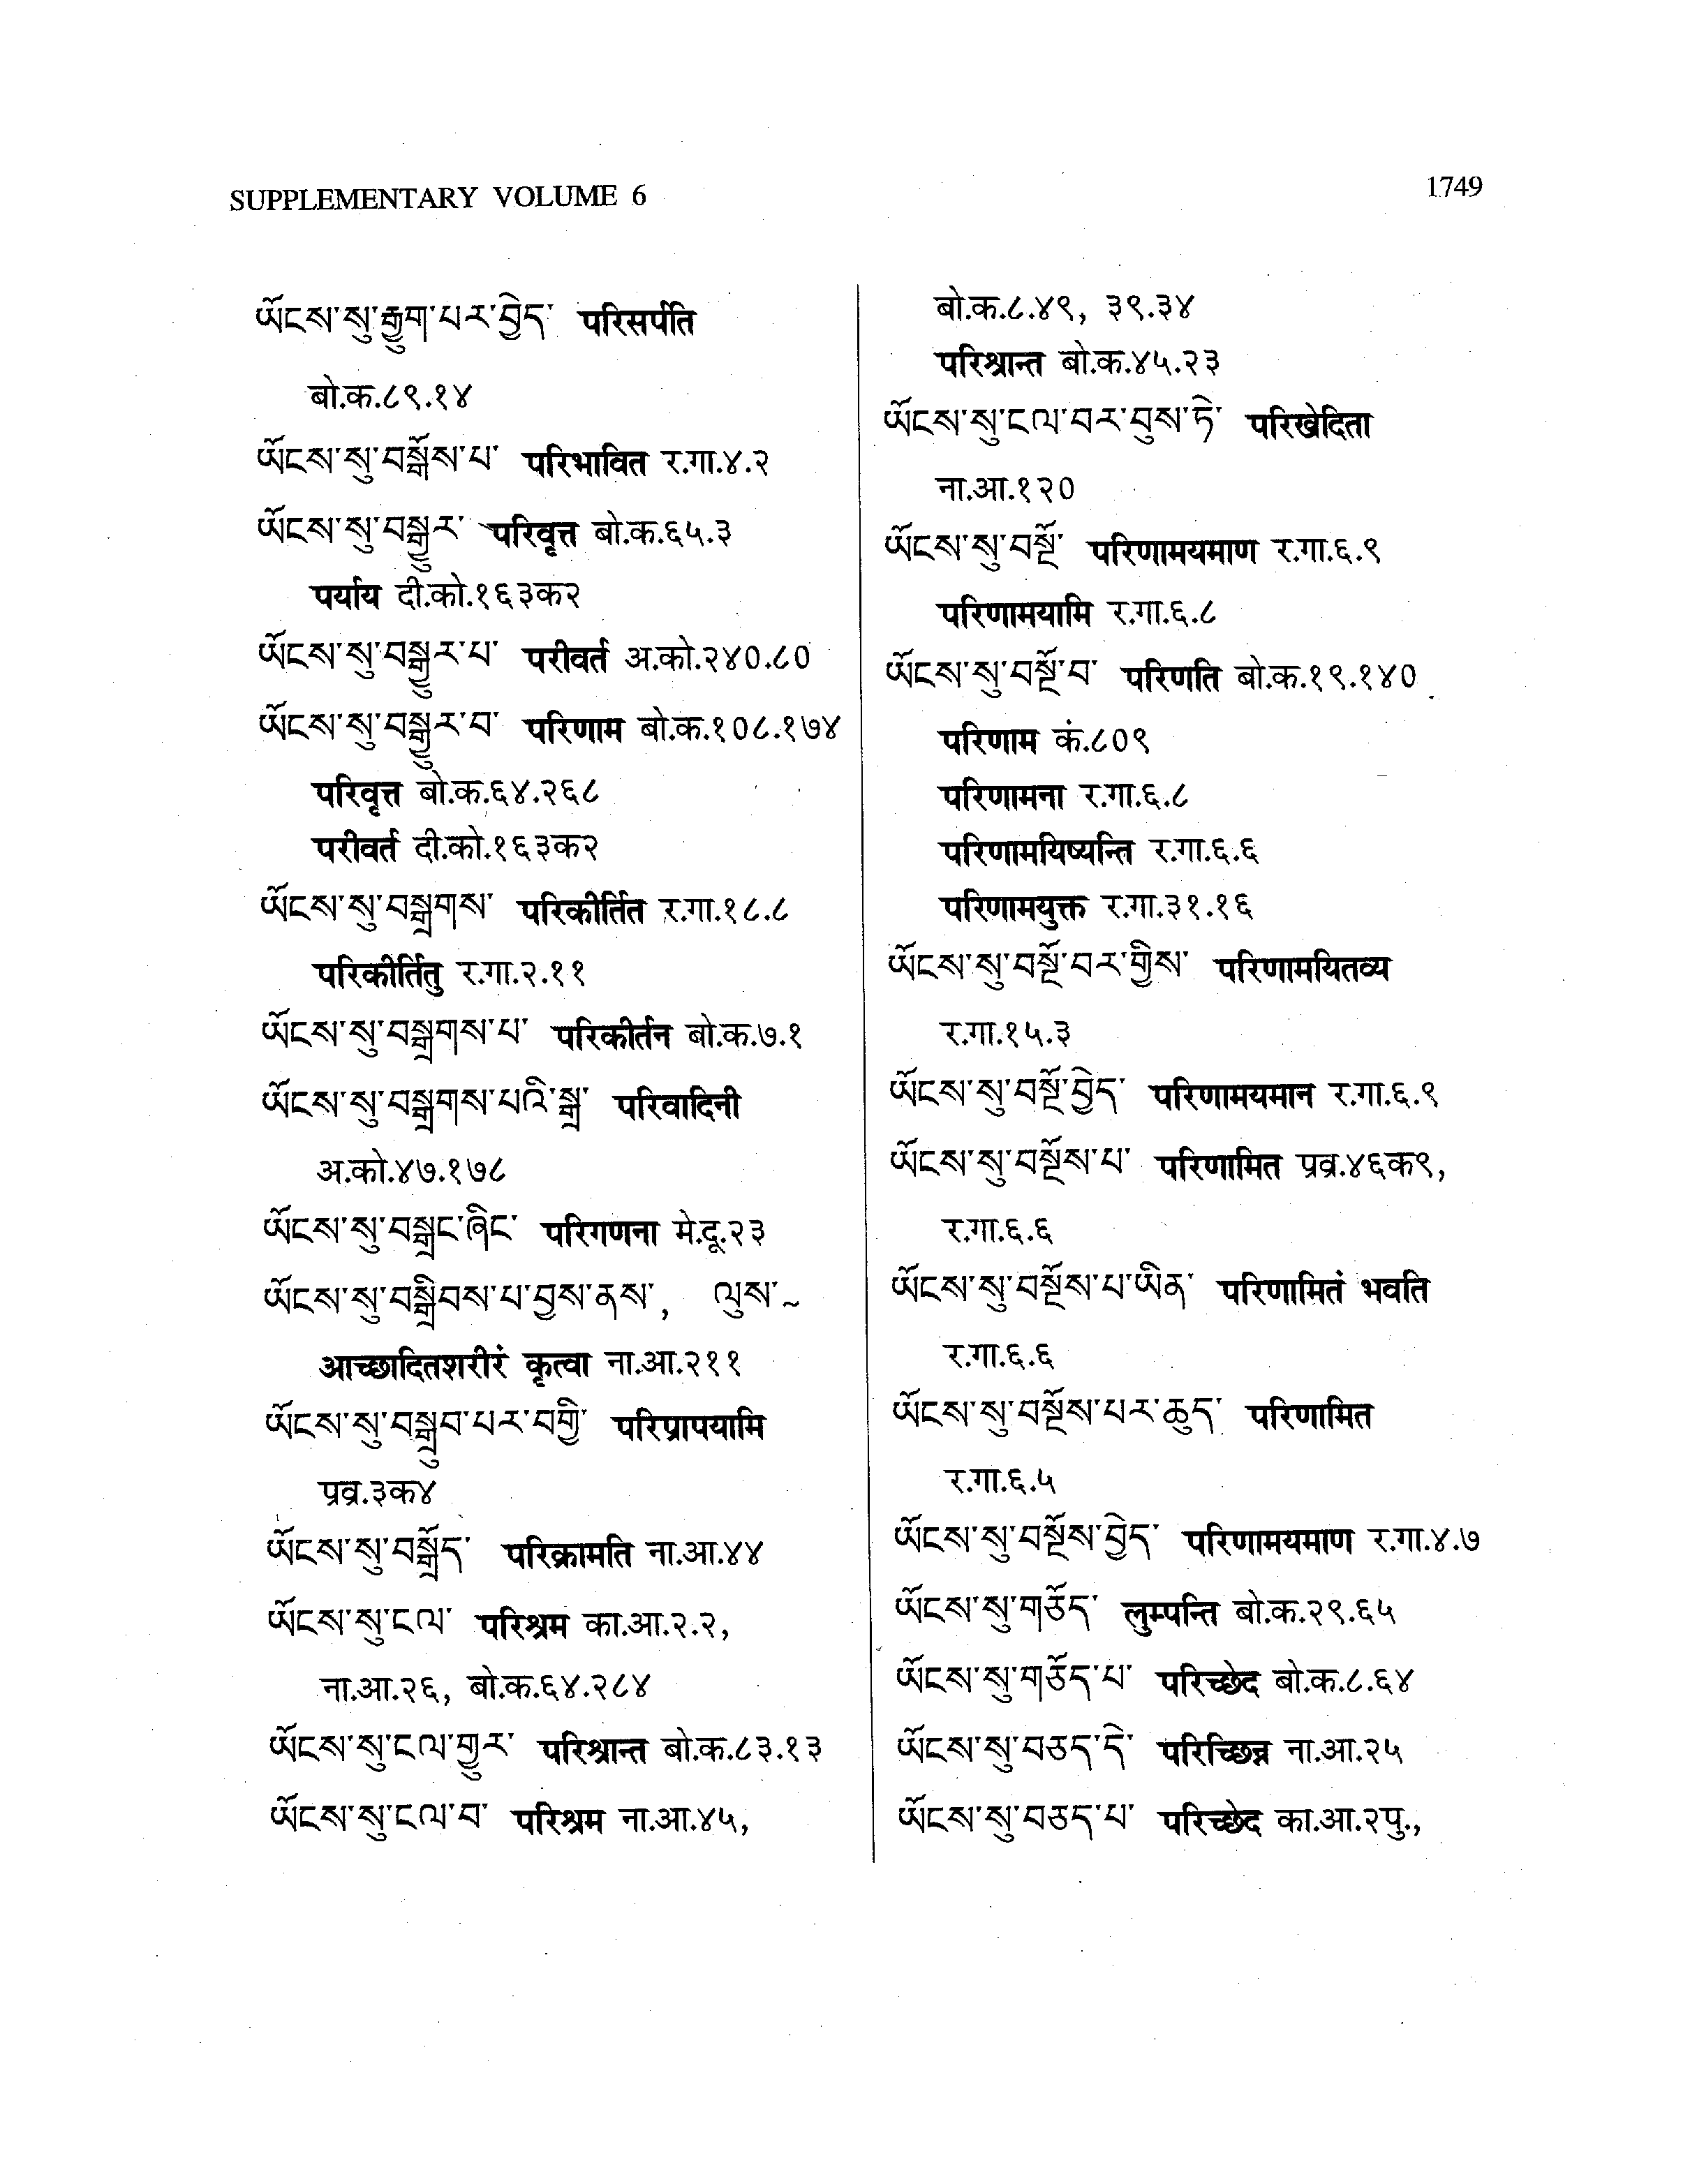 SUPPLEMENTARY VOLUME 6
1749
ཡོངས་སུ་རྒྱུག་པར་བྱེད་ परिसर्पति
बो.क.८९.१४
ཡོངས་སུ་བསྒོས་པ་ परिभावित र.गा.४.२
ཡོངས་སུ་བསྒྱུར་ परिवृत्त बो.क.६५.३
पर्याय दी.को.१६३क२
ཡོངས་སུ་བསྒྱུར་པ་ परीवर्त अ.को.२४०.८०
ཡོངས་སུ་བསྒྱུར་བ་ परिणाम बो.क.१०८.१७४
परिवृत्त बो.क.६४.२६८
परीवर्त दी.को.१६३क२
ཡོངས་སུ་བསྒྲགས་ परिकीर्तित र.गा.१८.८
परिकीर्तितु र.गा.२.११
ཡོངས་སུ་བསྒྲགས་པ་ परिकीर्तन बो.क.७.१
ཡོངས་སུ་བསྒྲགས་པའི་སྒྲ་ परिवादिनी
अ.को.४७.१७८
ཡོངས་སུ་བསྒྲང་ཞིང་ परिगणना मे.दू.२३
ཡོངས་སུ་བསྒྲིབས་པ་བྱས་ནས་, ལུས་~
आच्छादितशरीरं कृत्वा ना.आ.२११
ཡོངས་སུ་བསྒྲུབ་པར་བགྱི་ परिप्रापयामि
प्रव्र.३क४
ཡོངས་སུ་བསྒྲོད་ परिक्रामति ना.आ.४४
ཡོངས་སུ་ངལ་ परिश्रम का.आ.२.२,
ना.आ.२६, बो.क.६४.२८४
ཡོངས་སུ་ངལ་གྱུར་ परिश्रान्त बो.क.८३.१३
ཡོངས་སུ་ངལ་བ་ परिश्रम ना.आ.४५,
बो.क.८.४९, ३९.३४
परिश्रान्त बो.क.४५.२३
ཡོངས་སུ་ངལ་བར་བུས་ཏེ་ परिखेदिता
ना.आ.१२०
ཡོངས་སུ་བསྔོ་ परिणामयमाण र.गा.६.९
परिणामयामि र.गा.६.८
ཡོངས་སུ་བསྔོ་བ་ परिणति बो.क.१९.१४०
परिणाम कं.८०९
परिणामना र.गा.६.८
परिणामयिष्यन्ति र.गा.६.६
परिणामयुक्त र.गा.३१.१६
ཡོངས་སུ་བསྔོ་བར་གྱིས་ परिणामयितव्य
र.गा.१५.३
ཡོངས་སུ་བསྔོ་བྱེད་ परिणामयमान र.गा.६.९
ཡོངས་སུ་བསྔོས་པ་ परिणामित प्रव्र.४६क९,
र.गा.६.६
ཡོངས་སུ་བསྔོས་པ་ཡིན་ परिणामितं भवति
र.गा.६.६
ཡོངས་སུ་བསྔོས་པར་ཆུད་ परिणामित
र.गा.६.५
ཡོངས་སུ་བསྔོས་བྱེད་ परिणामयमाण र.गा.४.७
ཡོངས་སུ་གཅོད་ लुम्पन्ति बो.क.२९.६५
ཡོངས་སུ་གཅོད་པ་ परिच्छेद बो.क.८.६४
ཡོངས་སུ་བཅད་དེ་ परिच्छिन्न ना.आ.२५
ཡོངས་སུ་བཅད་པ་ परिच्छेद का.आ.२पु.,